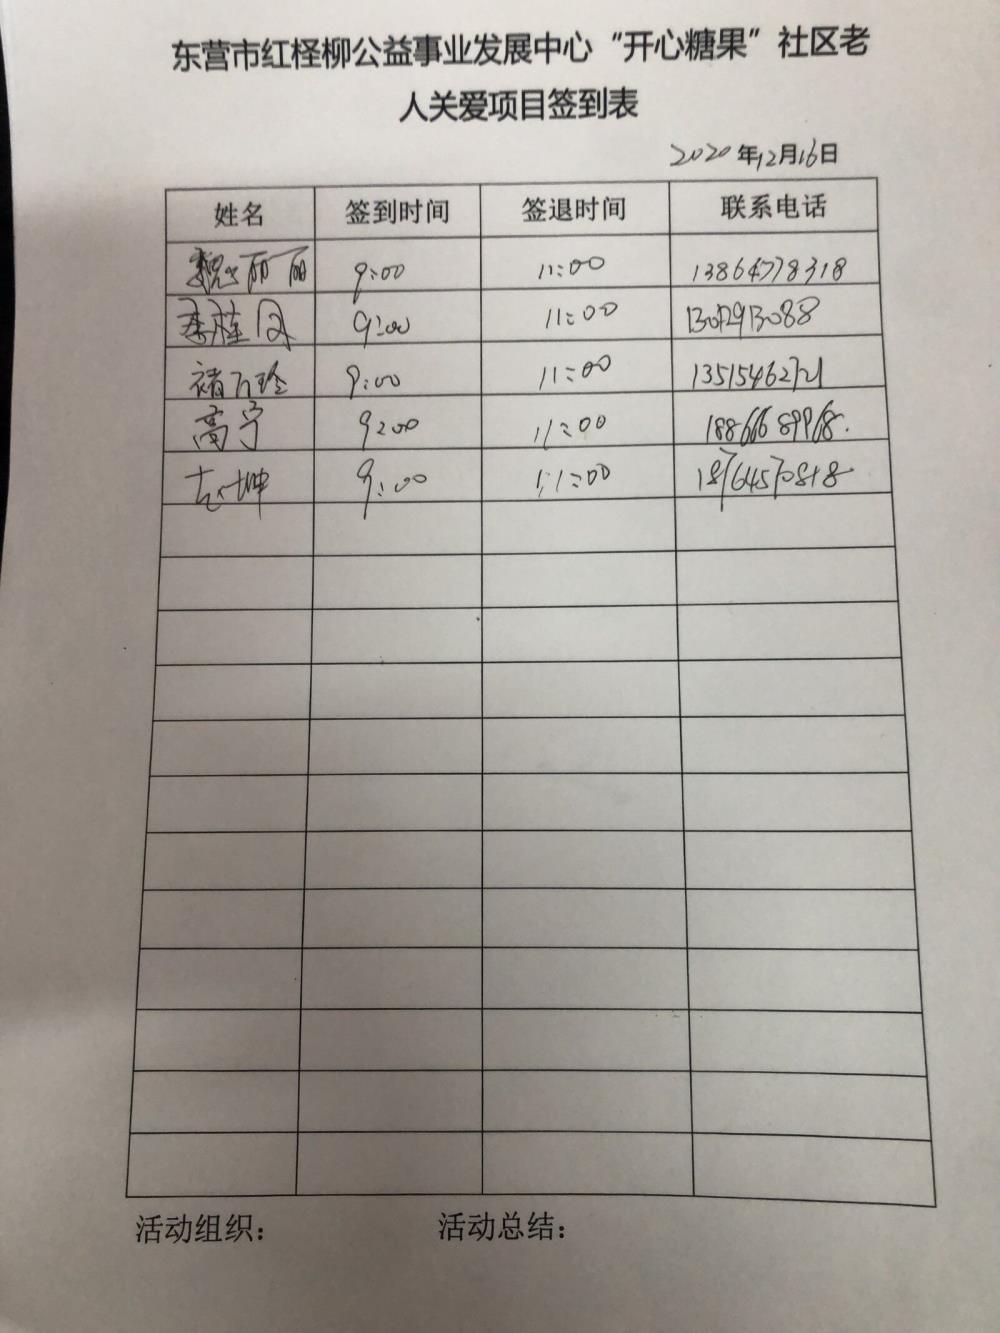 东营市红柽柳公益事业发展中心“开心糖果”社区老
人关爱项目签到表
2020年12月16日
姓名 签到时间 签退时间 联系电话
魏丽丽 9:00 11:00 13864778318
李桂 9:00 11:00
褚万玲 9:00 11:00 13515462721
高宁 9:00 11:00
9:00 11:00 18764570818
活动组织: 活动总结: